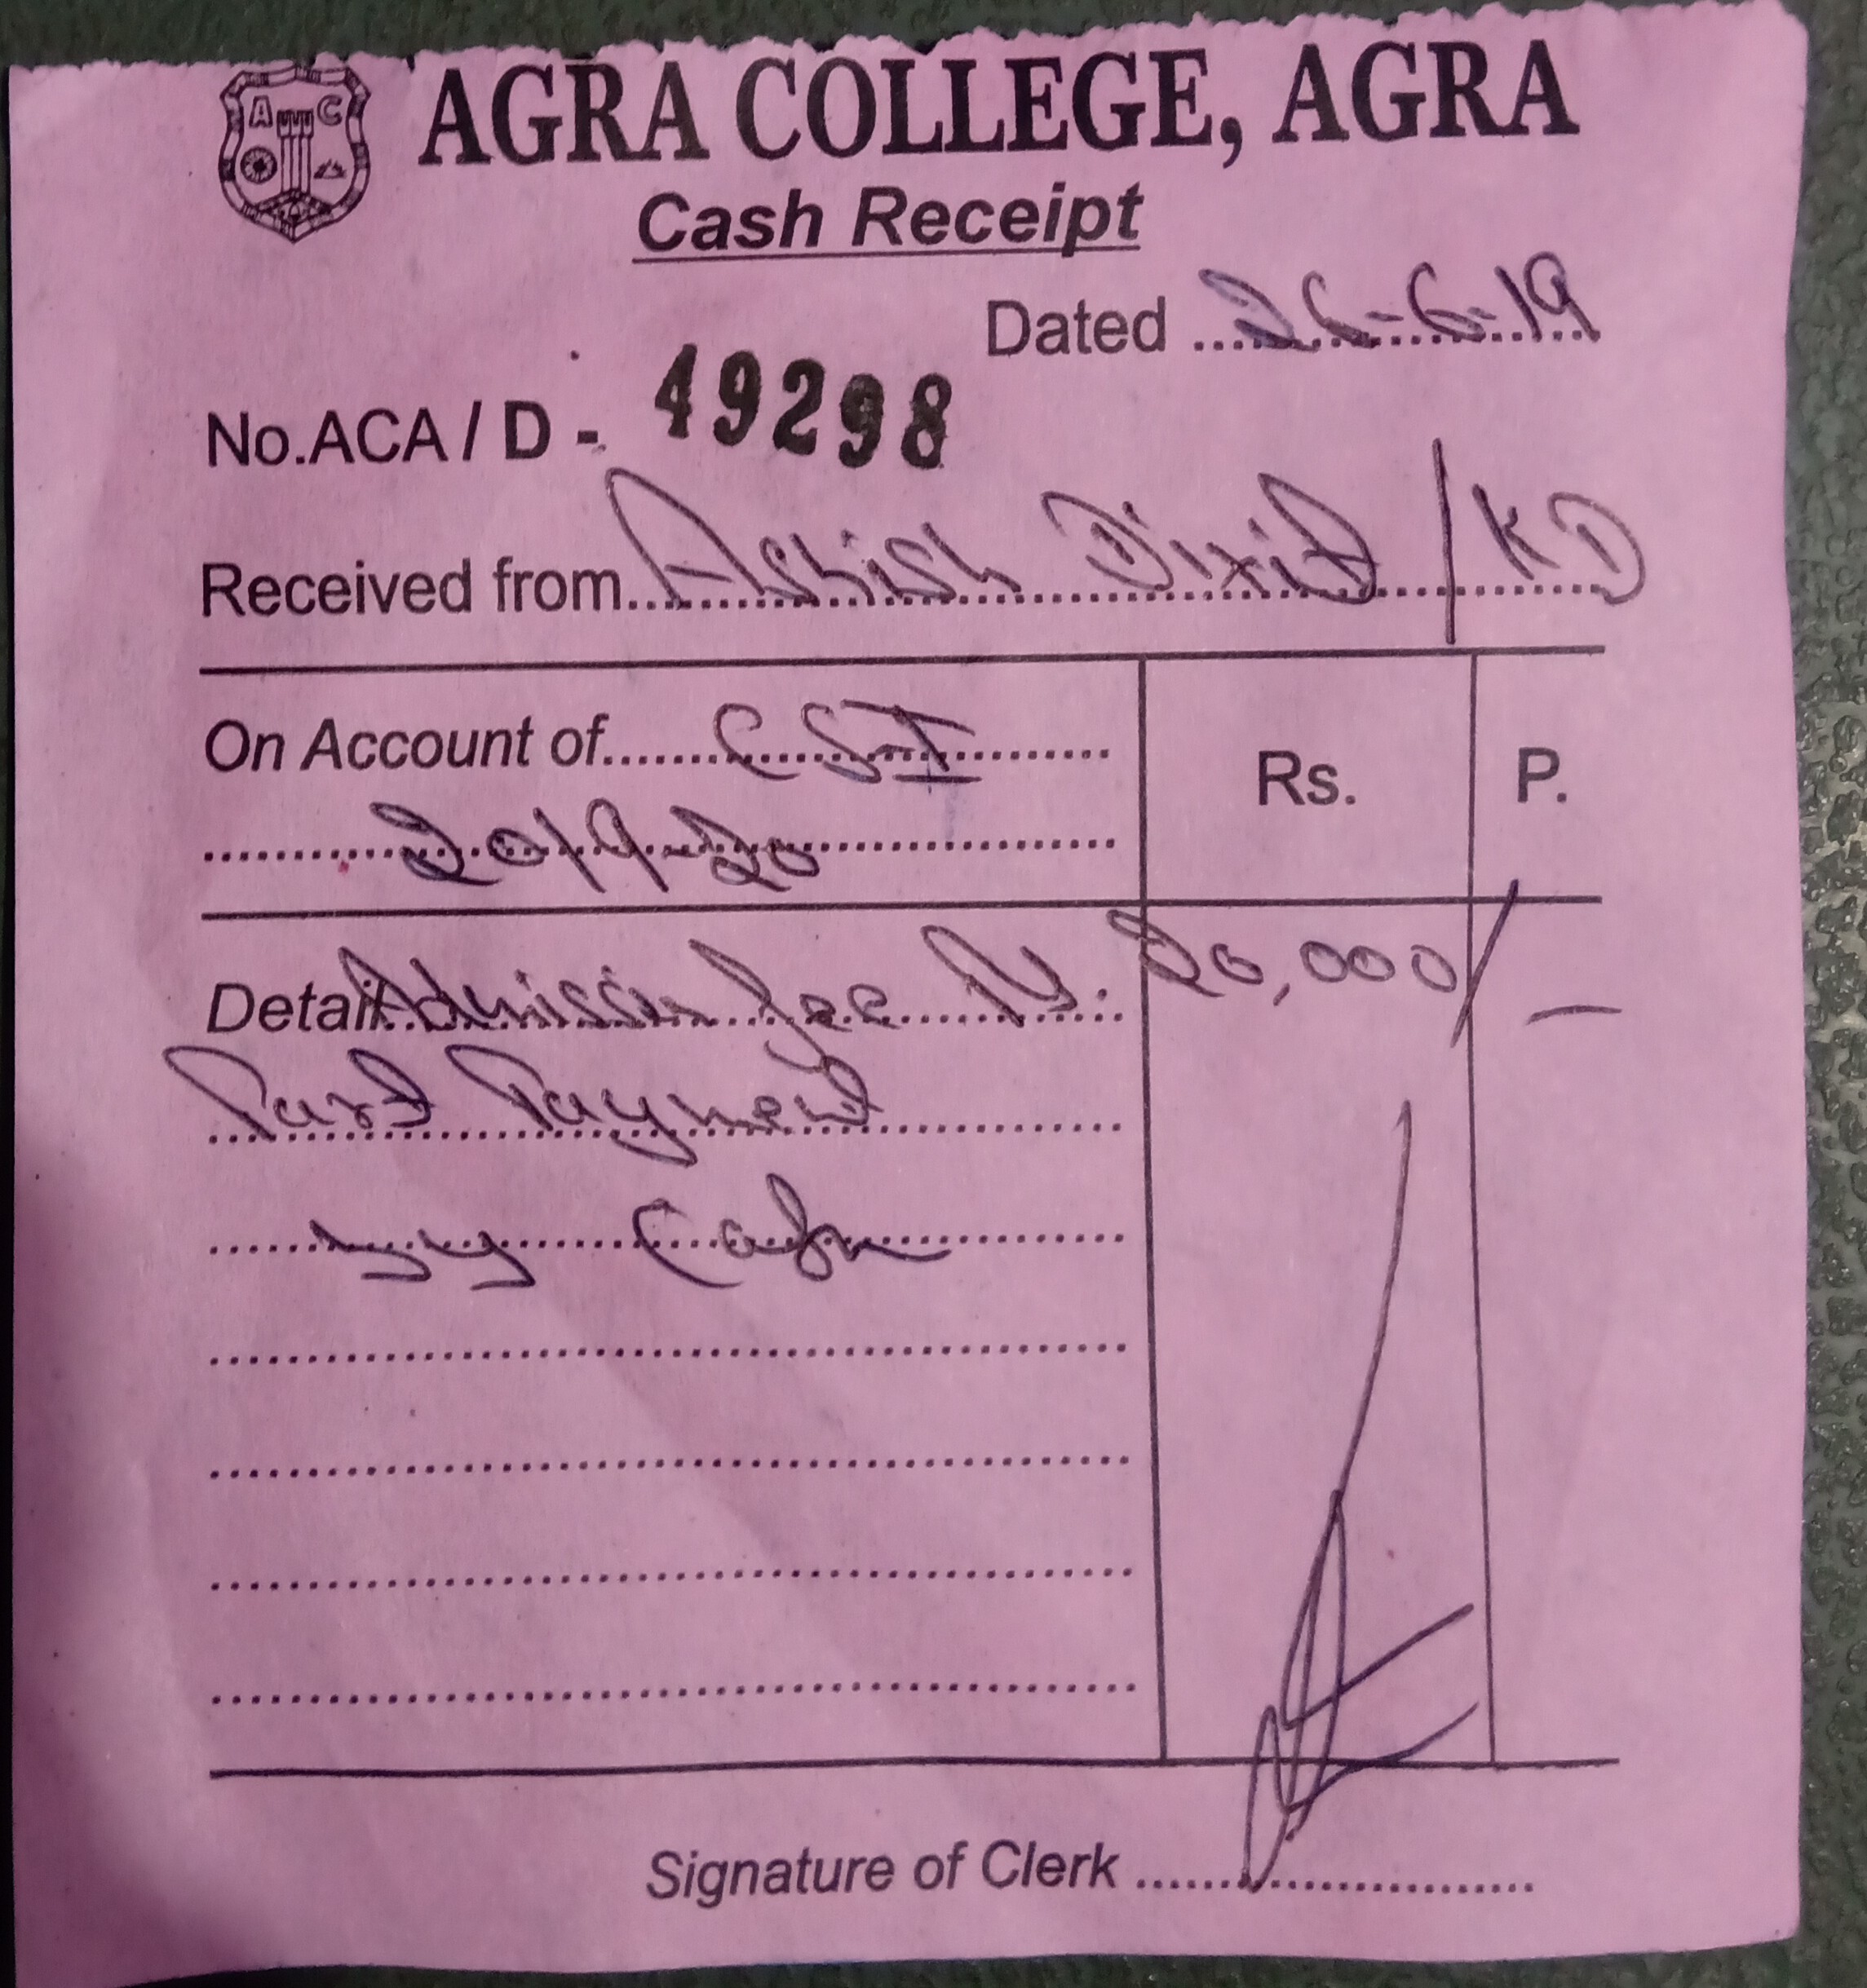 A C
AGRA COLLEGE, AGRA
Cash Receipt
Dated 26-6-19
No.ACA / D - 49298
Received from Ashish Dixit / KD
On Account of CS-I
Rs. P.
2019-20
Detail Admission fee Rs. 20,000/ —
Part Payment
by Cash
Signature of Clerk